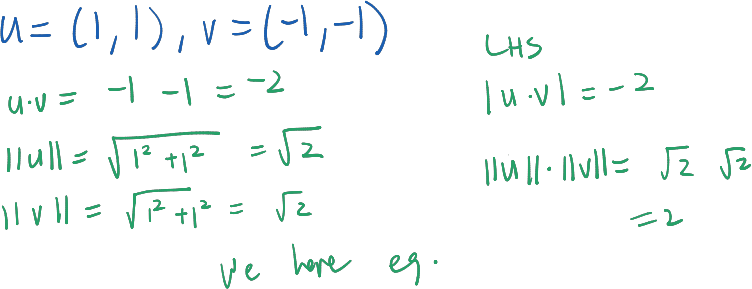 u = (1, 1), v = (-1, -1)
u·v = -1 -1 = -2
||u|| = √(1² + 1²) = √2
||v|| = √(1² + 1²) = √2
We have eq.
LHS
|u·v| = -2
||u||·||v|| = √2 √2
= 2